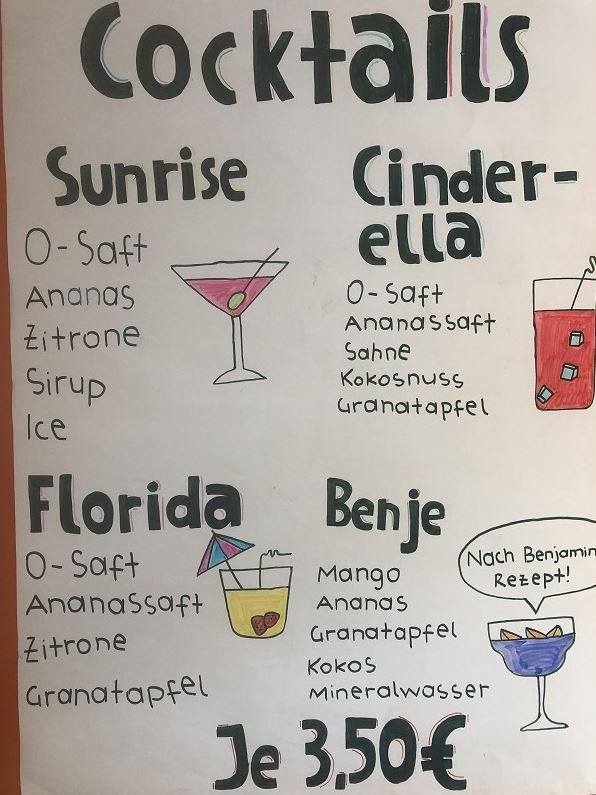 Cocktails
Sunrise
O-Saft
Ananas
Zitrone
Sirup
Ice
Cinder-
ella
O-Saft
Ananassaft
Sahne
Kokosnuss
Granatapfel
Florida
O-Saft
Ananassaft
Zitrone
Granatapfel
Benje
Mango
Ananas
Granatapfel
Kokos
Mineralwasser
Nach Benjamin
Rezept!
Je 3,50€